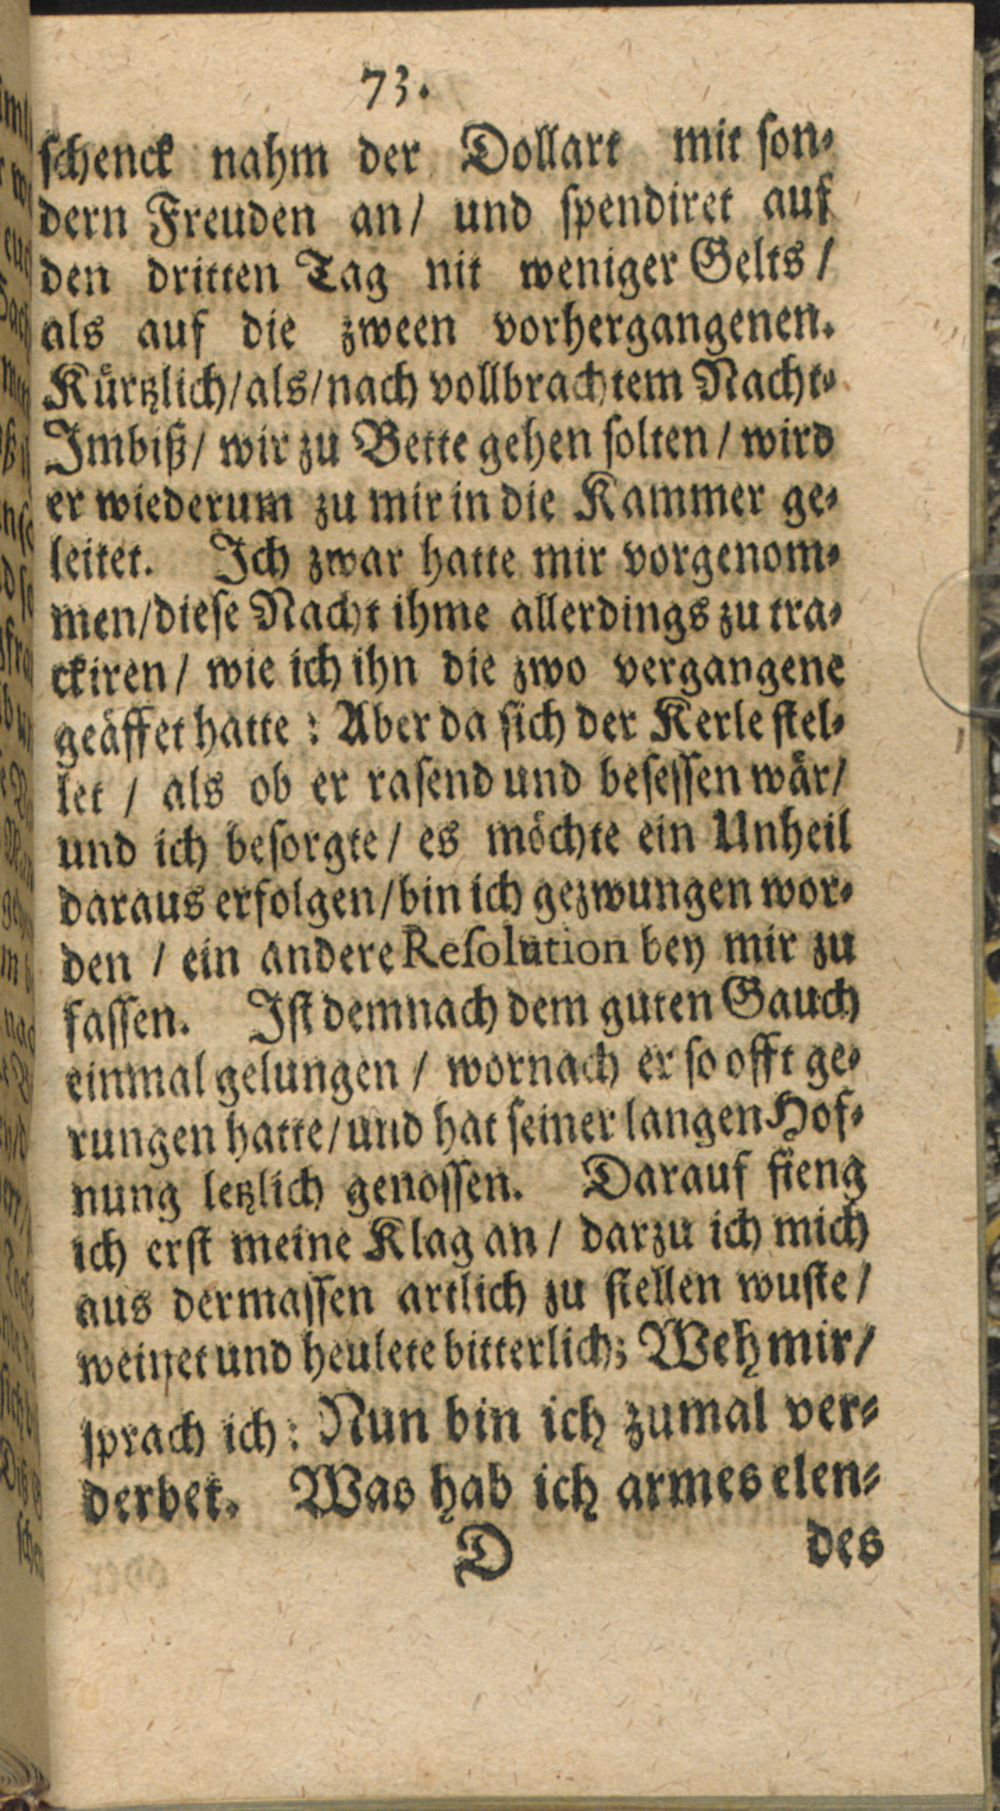 73.
schenck nahm der Dollart mit son-
dern Freuden an/ und spendiret auf
den dritten Tag nit weniger Gelts /
als auf die zween vorhergangenen.
Kürtzlich/als/nach vollbrachtem Nacht-
Imbiß/ wir zu Bette gehen solten / wird
er wiederum zu mir in die Kammer ge-
leitet. Ich zwar hatte mir vorgenom-
men/diese Nacht ihme allerdings zu tra-
ckiren / wie ich ihn die zwo vergangene
geäffet hatte : Aber da sich der Kerle stel-
let / als ob er rasend und besessen wär/
und ich besorgte / es möchte ein Unheil
daraus erfolgen/bin ich gezwungen wor-
den / ein andere Resolution bey mir zu
fassen. Ist demnach dem guten Gauch
einmal gelungen / wornach er so offt ge-
rungen hatte/und hat seiner langen Hof-
nung letzlich genossen. Darauf fieng
ich erst meine Klag an / darzu ich mich
aus dermassen artlich zu stellen wuste/
weinet und heulete bitterlich; Weh mir/
sprach ich : Nun bin ich zumal ver-
derbet. Was hab ich armes elen-
D des